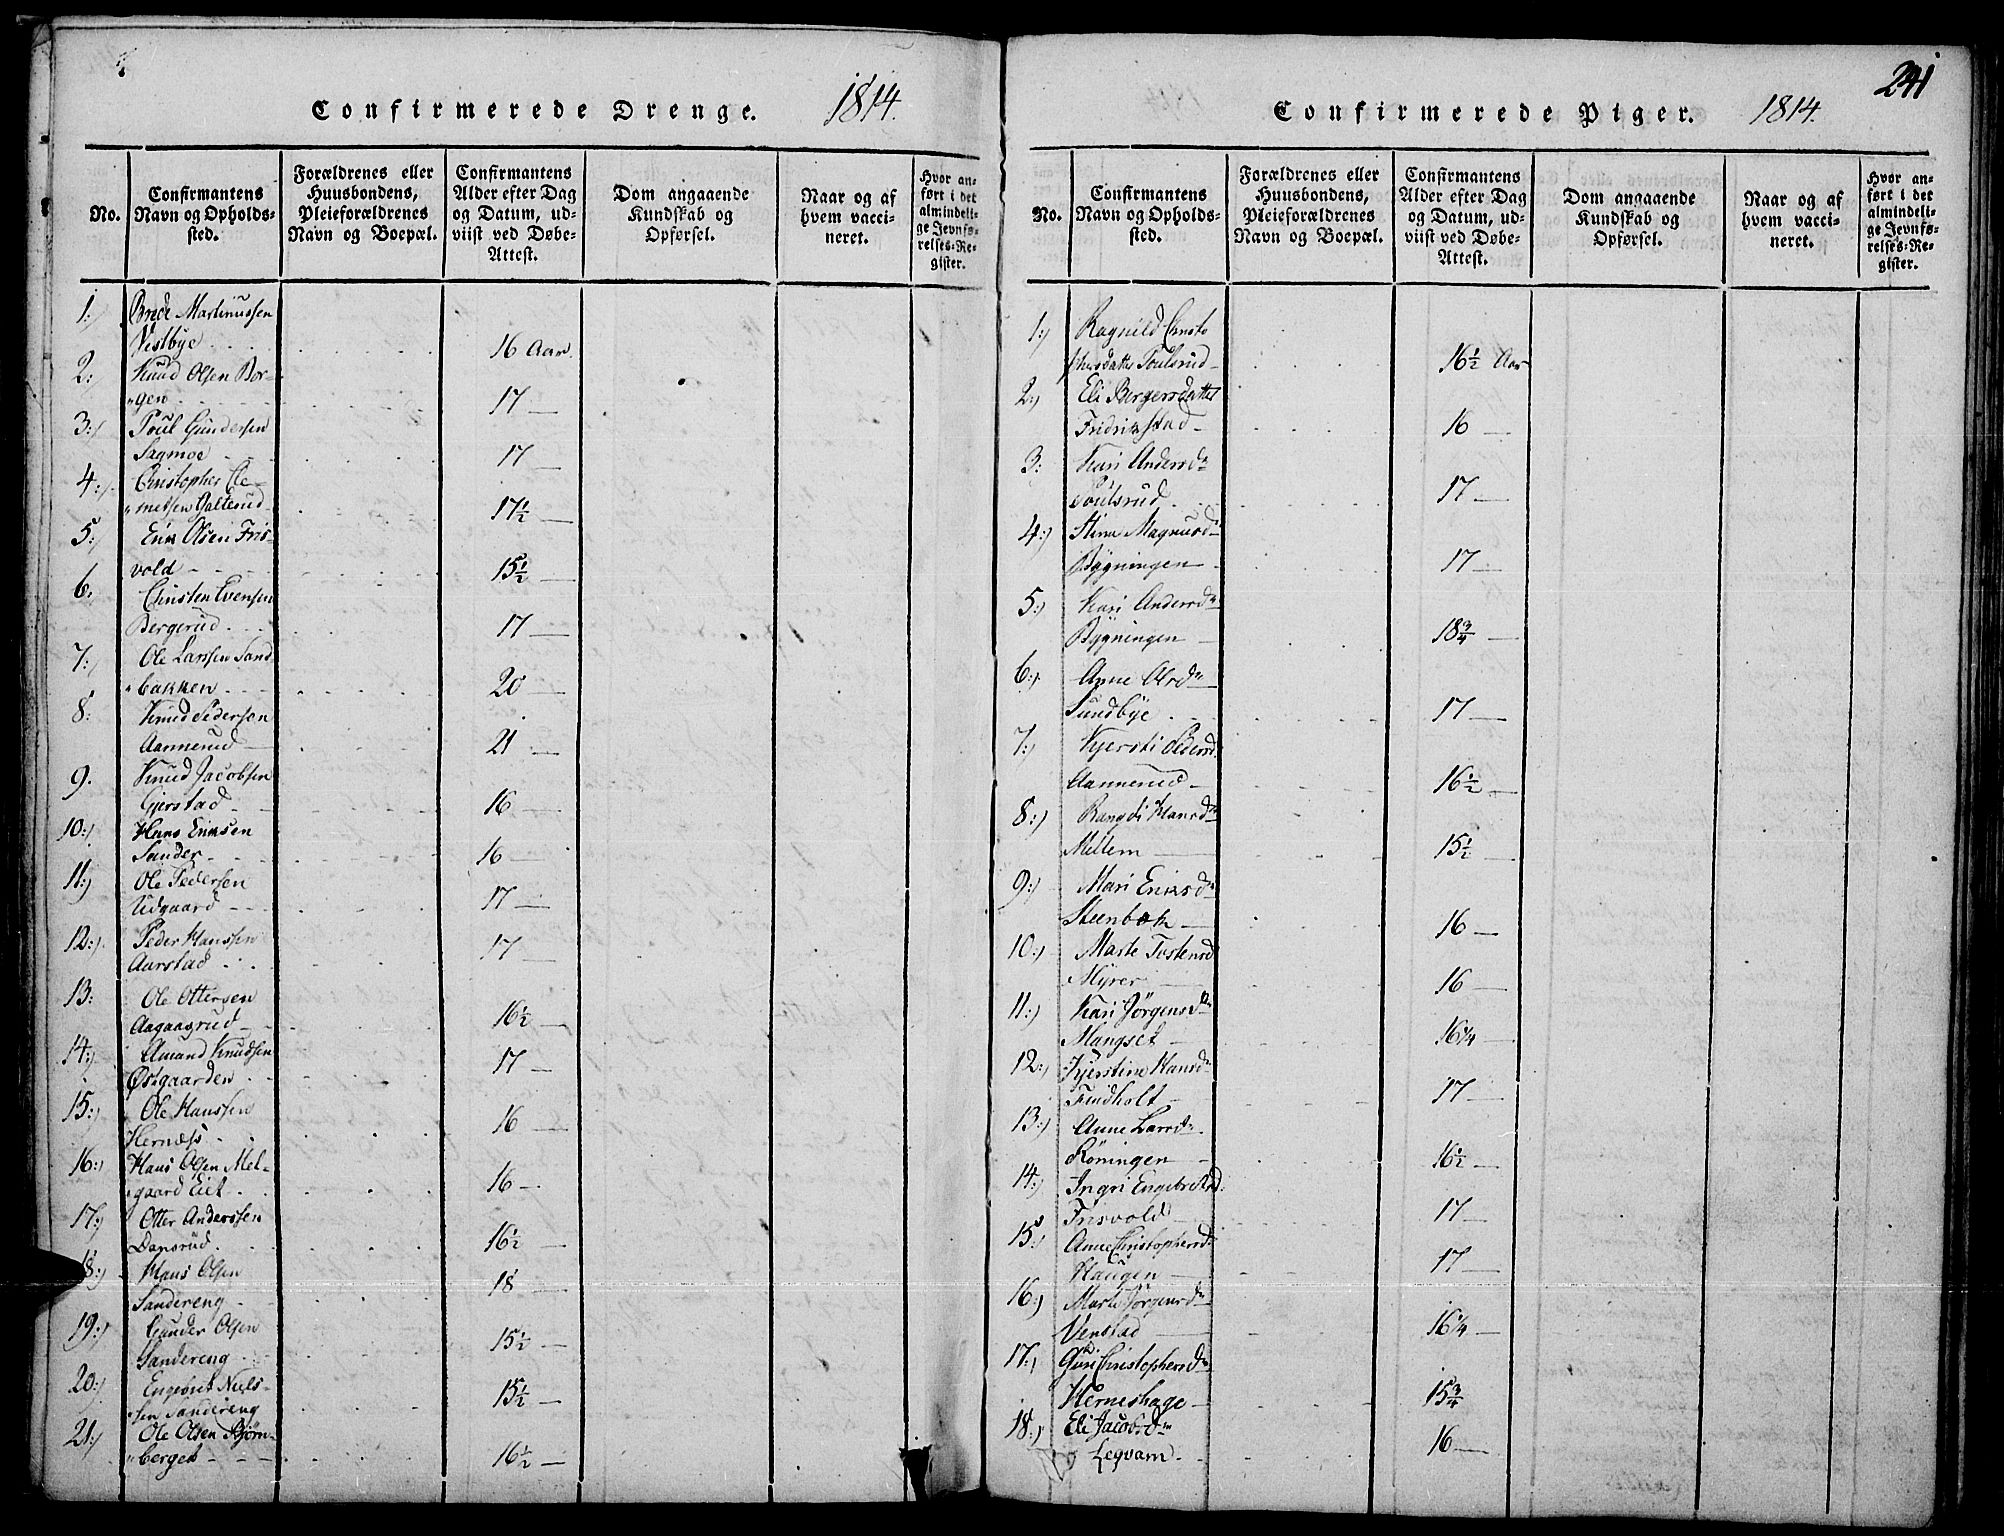 Confirmerede Drenge. 1814.
No.
Confirmantens Navn og Opholds-sted.
Forældrenes eller Huusbondens, Pleieforældrenes Navn og Boepæl.
Confirmantens Alder efter Dag og Datum, ud-viist ved Døbe-Attest.
Dom angaaende Kundskab og Opførsel.
Naar og af hvem vacci-neret.
Hvor an-ført i det almindeli-ge Jevnfø-relses-Re-gister.
1:) Brede Martinussen
Vestbye 16 Aar
2:) Knud Olsen Bor-
"gen 17 —
3:) Poul Gundersen
Sagmoe 17 —
4:) Christopher Cle-
"metsen Galterud 17½ —
5:) Erik Olsen Fris-
vold 15½ —
6: Christen Evensen
Bergerud 17 —
7:) Ole Larssen Sand
"bakken 20 —
8: Knud Pedersen
Aannerud 21 —
9. Knud Jacobsen
Gjerstad 16 —
10:) Hans Eriksen
Sander 16 —
11:) Ole Pedersen
Udgaard 17 —
12:) Peder Hanssen
Aarstad 17 —
13: Ole Ottersen
Aagaasrud 16½ —
14:) Amund Knudsen
Østgaarden 17 —
15:) Ole Hanssen
Hernæss 16 —
16:) Hans Olsen Mel-
"gaard Eiet 16 —
17:) Otter Anderssen
Dansrud 16½ —
18:) Hans Olsen
Sandereng 18 —
19:) Gunder Olsen
Sandereng 15½ —
20:) Engebret Niels-
"sen Sandereng 15½ —
21:) Ole Olsen Bjørn-
"berget 16½ —
241
Confirmerede Piger. 1814.
No.
Confirmantens Navn og Opholds-sted.
Forældrenes eller Huusbondens, Pleieforældrenes Navn og Boepæl.
Confirmantens Alder efter Dag og Datum, ud-viist ved Døbe-Attest.
Dom angaaende Kundskab og Opførsel.
Naar og af hvem vacci-neret.
Hvor an-ført i det almindeli-ge Jevnfø-relses-Re-gister.
1:) Ragnild Christo
phersdatter Poulsrud 16½ Aar
2:) Eli Bergersdatter
Fridrikstad 16 —
3: Kari Andersdr
Poulsrud 17 —
4:) Stine Magnusdr
Bygningen 17 —
5:) Kari Andersdr
Bygningen 18¾ —
6:) Anne Olsdr
Sundbye 17 —
7:) Kjersti Pedersd:
Aannerud 16½ —
8:) Rangdi Hansdr
Mellem 15½ —
9:) Mari Eriksdr
Steenbæk 16 —
10:) Marte Tostensd
Myrer 16 —
11:) Kari Jørgensdr
Mangset 16¼ —
12:) Kjerstine Hansdr
Findholt 17 —
13:) Anne Larsdr
Røningen 16½ —
14:) Ingri Engebretsd:
Frisvold 17 —
15:) Anne Christophersdr
Haugen 17 —
16:) Marte Jørgensdr
Venstad 16¼ —
17:) Guri Christophersdr
Herneshage 15¾ —
18:) Eli Jacobsdr
Legvam 16 —